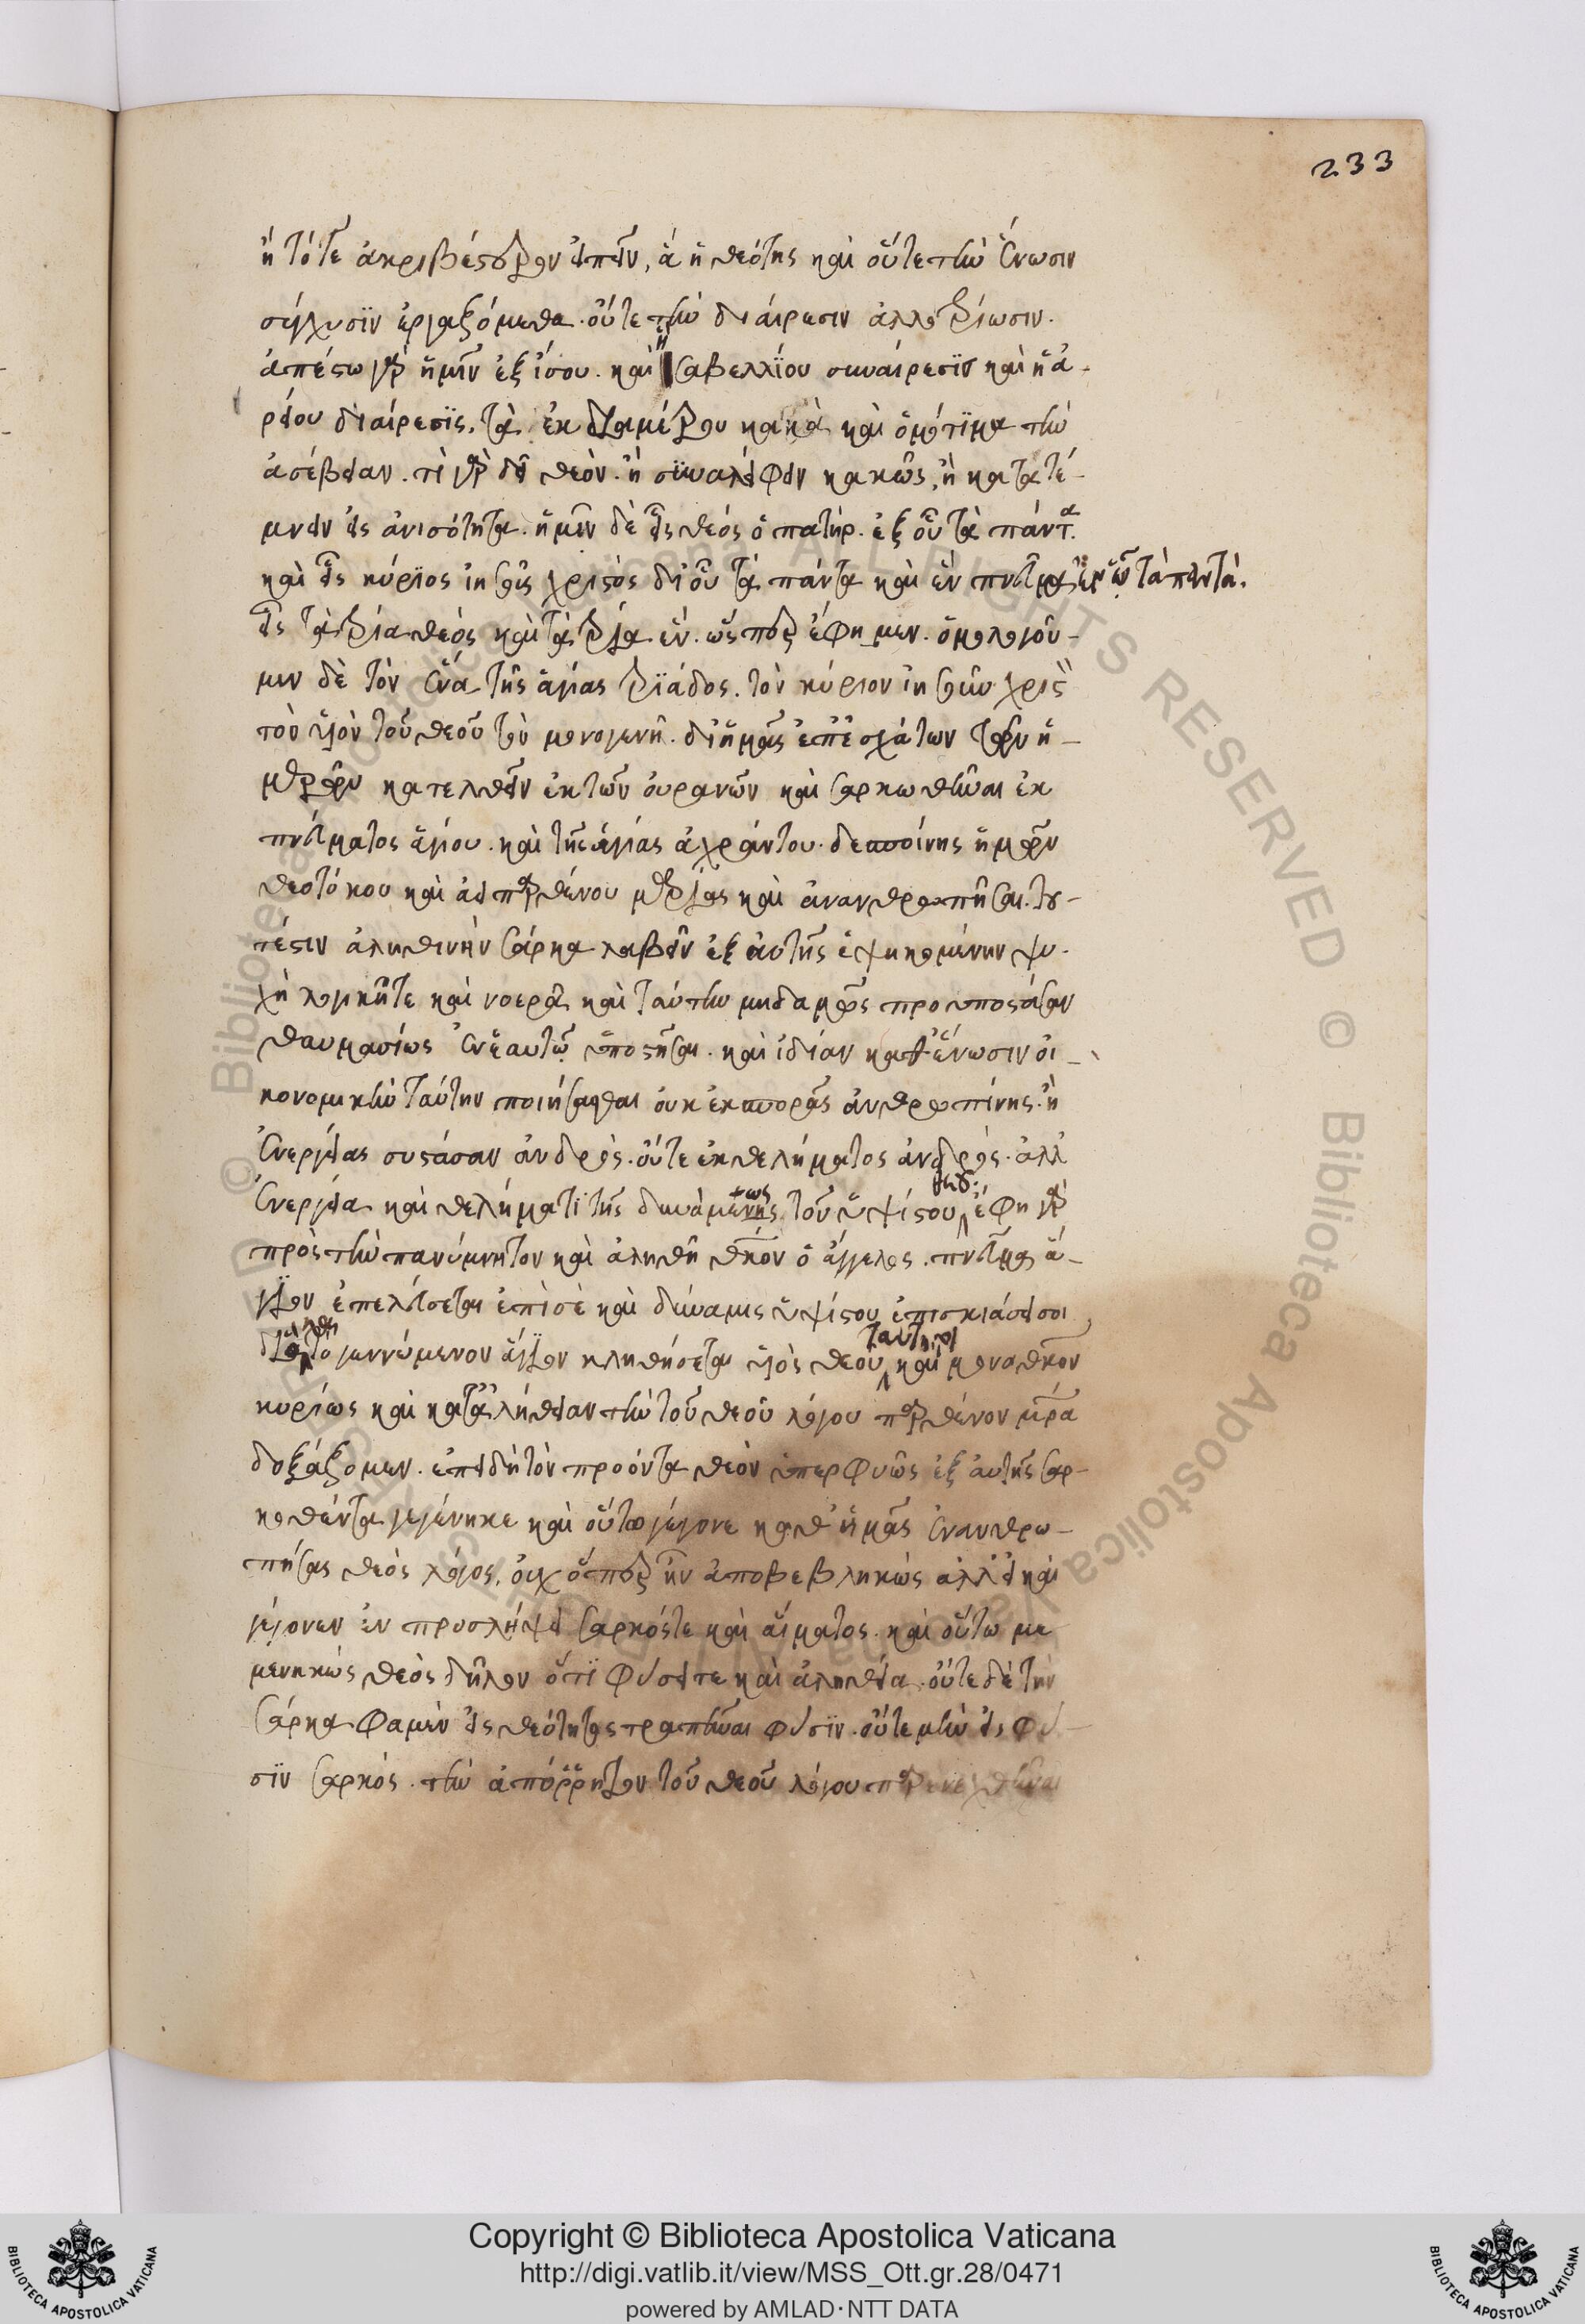 233
ἢ τότε ἀκριβέστερον εἰπεῖν, ἃ ἡ θεότης καὶ οὔτε τὴν ἕνωσιν
σύγχυσϊν ἐργαζόμεθα. οὔτε τὴν διαίρεσιν ἀλλοτρίωσιν.
ἀπέστω γὰρ ἡμῖν ἐξ ἴσου. καὶ ἡ Σαβελλΐου συναίρεσϊς καὶ ἡ ἀ-
ρείου διαίρεσϊς, τὰ ἐκ διαμέτρου κακὰ καὶ ὁμότϊμα τὴν
ἀσέβειαν. τί γὰρ δεῖ θεὸν ἢ συναλείφειν κακῶς, ἢ κατατέ-
μνειν εἰς ἀνισότητα. ἡμῖν δὲ εἷς θεός ὁ πατήρ. ἐξ οὗ τὰ πάντα.
καὶ εἷς κύρϊος ἰησοῦς χριστὸς δι' οὗ τὰ πάντα καὶ ἓν πνεῦμα ἐν ᾧ τὰ πάντα.
εἷς τὰ τρία θεός καὶ τὰ τρία ἕν. ὥσπερ ἔφημεν. ὁμολογοῦ-
μεν δὲ τὸν ἕνα τῆς ἁγίας τρϊάδος. τὸν κύριον ἰησοῦν χριστὸν
τὸν υἱὸν τοῦ θεοῦ τὸν μονογενῆ. δι' ἡμᾶς ἐπ' ἐσχάτων τῶν ἡ-
μερῶν κατελθεῖν ἐκ τῶν οὐρανῶν καὶ σαρκωθῆναι ἐκ
πνεύματος ἁγίου. καὶ τῆς ἁγίας ἀχράντου. δεσποίνης ἡμῶν
θεοτόκου καὶ ἀειπαρθένου μαρίας καὶ ἀνανθρωπῆσαι. του-
τέστιν ἀληθινὴν σάρκα λαβεῖν ἐξ αὐτῆς ἐψυχωμένην ψυ-
χῇ λογικῇ τε καὶ νοερᾷ καὶ ταύτην μηδαμῶς προυποστᾶσαν
θαυμασίως ἐν ἑαυτῷ ὑποστῆσαι. καὶ ἰδίαν καθ' ἕνωσιν οἰ-
κονομικὴν ταύτην ποιήσασθαι οὐκ ἐκ σπορᾶς ἀνθρωπίνης. ἢ
ἐνεργείας συστάσαν ἀνδρὸς. οὔτε ἐκ θελήματος ἀνδρὸς. ἀλλ'
ἐνεργεία καὶ θελήματϊ τῆς δυνάμεως τοῦ ὑψίστου θεοῦ. ἔφη γὰρ
πρὸς τὴν πανύμνητον καὶ ἀληθῆ θεοτόκον ὁ ἄγγελος. πνεῦμα ἅ-
γϊον ἐπελεύσεται ἐπὶ σὲ καὶ δύναμις ὑψίστου ἐπισκιάσει σοι
διὸ καὶ τὸ γεννώμενον ἅγϊον κληθήσεται υἱὸς θεοῦ ταύτη τοι καὶ μόνα θεοτόκον
κυρίως καὶ κατ' ἀλήθειαν τὴν τοῦ θεοῦ λόγου παρθένον μητέρα
δοξάζομεν. ἐπειδὴ τὸν προόντα θεὸν ὑπερφυῶς ἐξ αὐτῆς σαρ-
κοθέντα γεγένηκε καὶ οὕτω γέγονε καθ' ἡμᾶς ἐνανθρω-
πήσας θεὸς λόγος. οὐχ ὅπερ ἦν ἀποβεβληκὼς ἀλλ' εἰ καὶ
γέγονεν ἐν προσλήψει σαρκός τε καὶ αἵματος. καὶ οὕτω με
μενηκὼς θεὸς δῆλον ὅτϊ φύσει τε καὶ ἀληθεία. οὔτε δὲ τὴν
σάρκα φαμὲν εἰς θεότητος τραπῆναι φύσϊν. οὔτε μὴν εἰς φύ-
σϊν σαρκός. τὴν ἀπόῤῥητον τοῦ θεοῦ λόγου παρενεχθῆναι
Copyright © Biblioteca Apostolica Vaticana
http://digi.vatlib.it/view/MSS_Ott.gr.28/0471
powered by AMLAD·NTT DATA